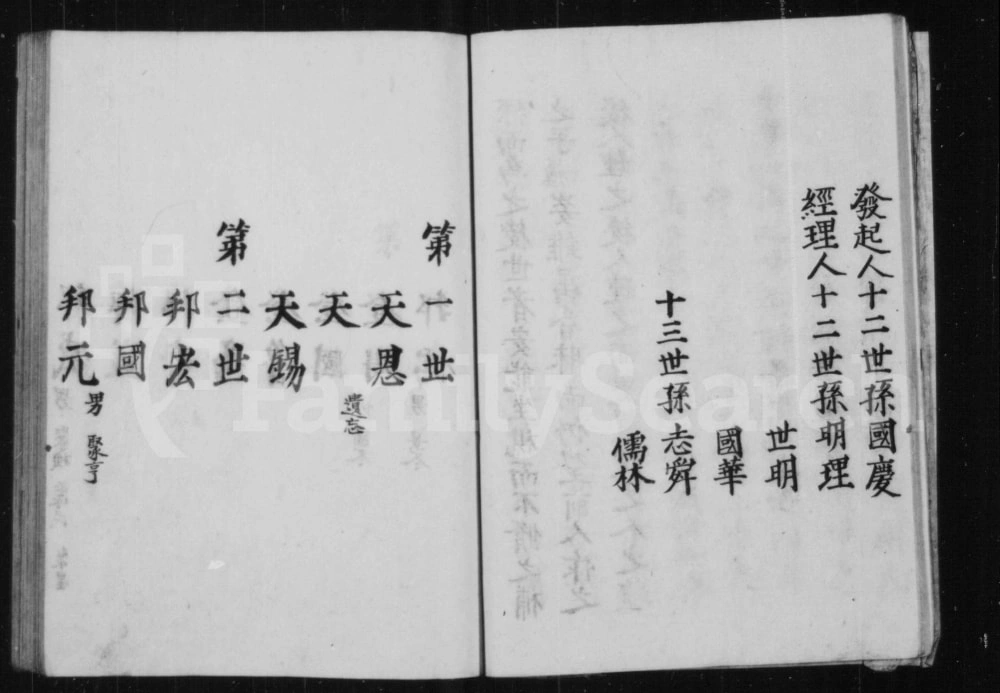 發起人十二世孫國慶
經理人十二世孫明理
世明
國華
十三世孫志舜
儒林
第一世
天恩
天 遺忘
天錫
第二世
邦宏
邦國
邦元 男 聚亨
FamilySearch